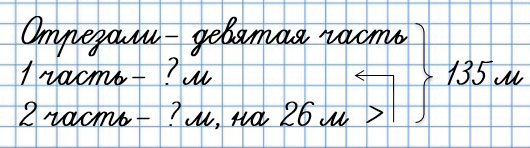 Отрезали – девятая часть
1 часть – ? м
2 часть – ? м, на 26 м >
135 м